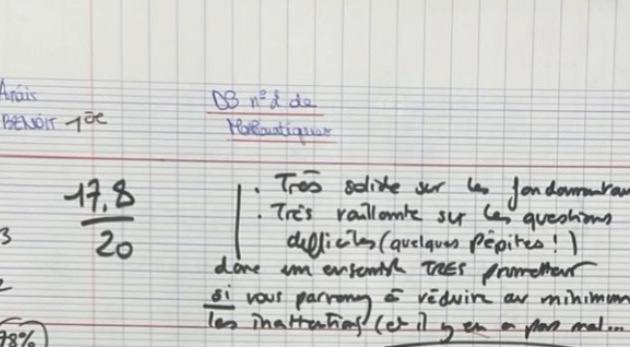 Anaïs
DB n°2 de
BENOIT 1ère
Mathématiques
17,8
20
• Très solide sur les fondamentaux
• Très vaillante sur les questions
difficiles (quelques pépites !)
donc un ensemble TRES prometteur
si vous parvenez à réduire au minimum
les inattentions (et il y en a pas mal...
3
2
78%